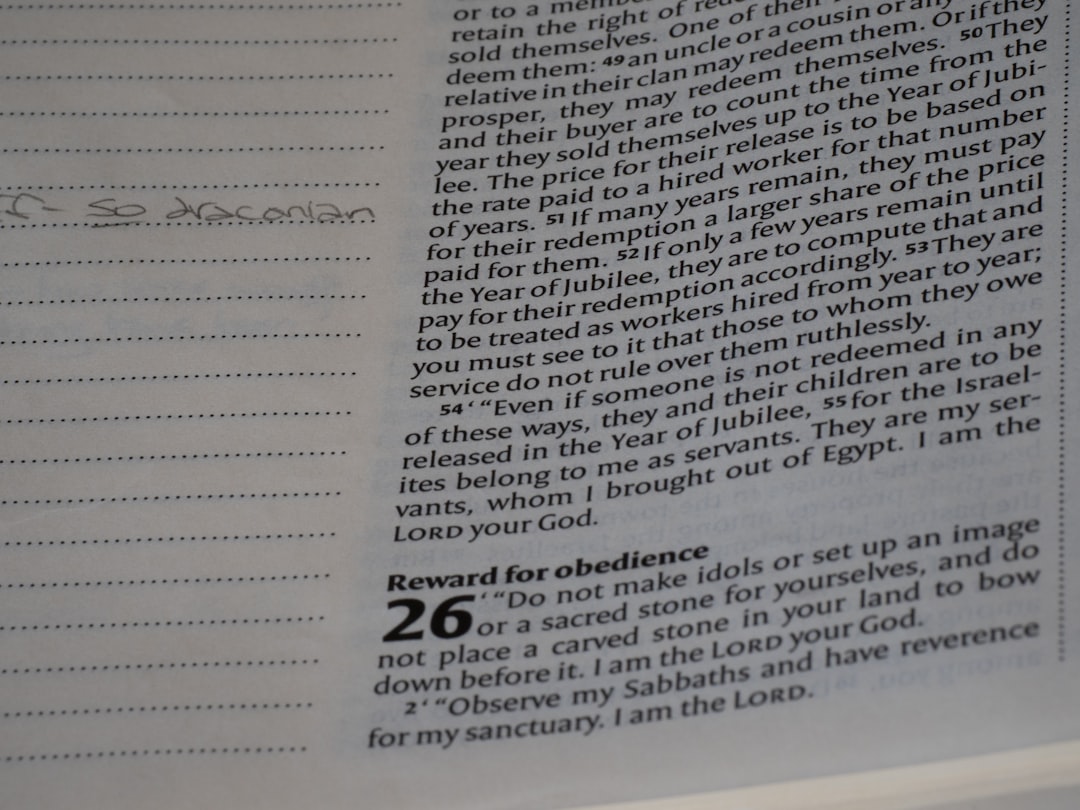 - so draconian
or to a
retain the right of
sold themselves. One of
deem them: 49 an uncle or a cousin or any
relative in their clan may redeem them. Or if they
prosper, they may redeem themselves. 50 They
and their buyer are to count the time from the
year they sold themselves up to the Year of Jubi-
lee. The price for their release is to be based on
the rate paid to a hired worker for that number
of years. 51 If many years remain, they must pay
for their redemption a larger share of the price
paid for them. 52 If only a few years remain until
the Year of Jubilee, they are to compute that and
pay for their redemption accordingly. 53 They are
to be treated as workers hired from year to year;
you must see to it that those to whom they owe
service do not rule over them ruthlessly.
54 ‘ “Even if someone is not redeemed in any
of these ways, they and their children are to be
released in the Year of Jubilee, 55 for the Israel-
ites belong to me as servants. They are my ser-
vants, whom I brought out of Egypt. I am the
LORD your God.
Reward for obedience
26 ‘ “Do not make idols or set up an image
or a sacred stone for yourselves, and do
not place a carved stone in your land to bow
down before it. I am the LORD your God.
2 ‘ “Observe my Sabbaths and have reverence
for my sanctuary. I am the LORD.